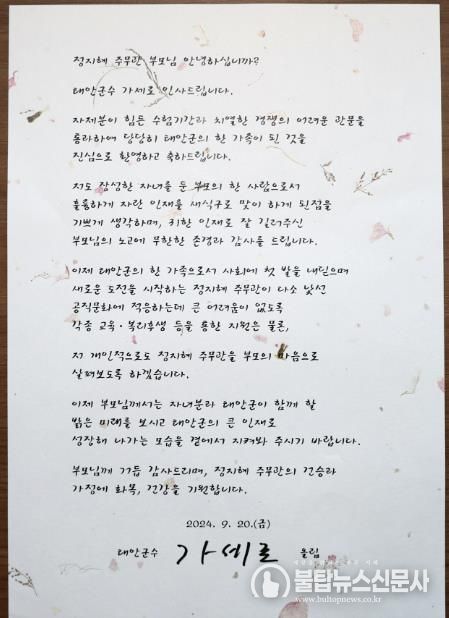 정지혜 주무관 부모님 안녕하십니까?
태안군수 가세로 인사드립니다.
자제분이 힘든 수험기간과 치열한 경쟁의 어려운 관문을
통과하여 당당히 태안군의 한 가족이 된 것을
진심으로 환영하고 축하드립니다.
저도 장성한 자녀를 둔 부모의 한 사람으로서
훌륭하게 자란 인재를 새식구로 맞이 하게 된점을
기쁘게 생각하며, 귀한 인재로 잘 길러주신
부모님의 노고에 무한한 존경과 감사를 드립니다.
이제 태안군의 한 가족으로서 사회에 첫 발을 내딛으며
새로운 도전을 시작하는 정지혜 주무관이 다소 낯선
공직문화에 적응하는데 큰 어려움이 없도록
각종 교육·복리후생 등을 통한 지원은 물론,
저 개인적으로도 정지혜 주무관을 부모의 마음으로
살펴보도록 하겠습니다.
이제 부모님께서는 자녀분과 태안군이 함께 할
밝은 미래를 보시고 태안군의 큰 인재로
성장해 나가는 모습을 곁에서 지켜봐 주시기 바랍니다.
부모님께 거듭 감사드리며, 정지혜 주무관의 건승과
가정에 화목, 건강을 기원합니다.
2024. 9. 20.(금)
태안군수 가세로 올림
불탑뉴스신문사
www.bultopnews.co.kr